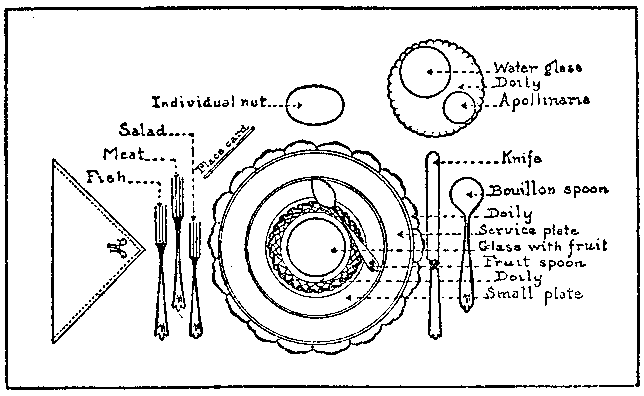 Water glass
Doily
Apollinaris
Individual nut
Place card
Salad
Meat
Fish
Knife
Bouillon spoon
Doily
Service plate
Glass with fruit
Fruit spoon
Doily
Small plate